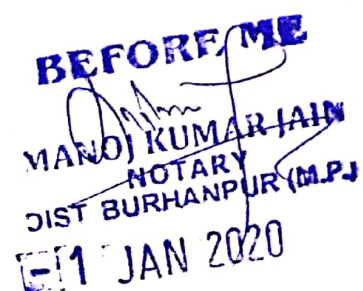 BEFORE ME
MANOJ KUMAR JAIN
NOTARY
DIST BURHANPUR (M.P.)
-1 JAN 2020